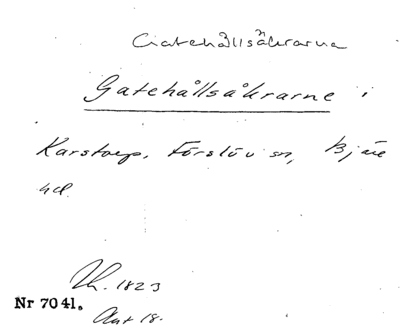 Gatehållsåkrarna
Gatehållsåkrarne i
Karstorp, Förslöv sn, Bjäre
hd.
1823
Nr 7041.
Akt 18.